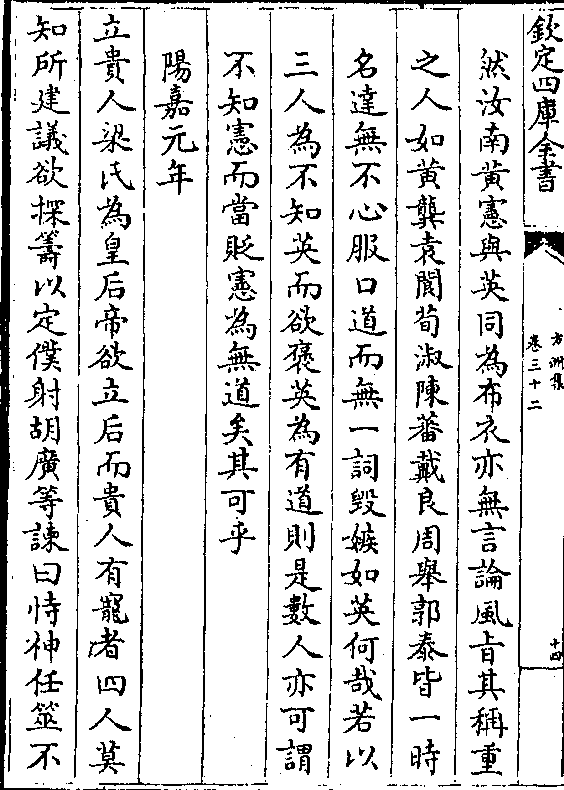 欽定四庫全書
方洲集
卷三十二
十四
然汝南黄憲與英同為布衣亦無言論風旨其稱重
之人如黄龔袁閬荀淑陳蕃戴良周舉郭泰皆一時
名達無不心服口道而無一詞毁嫉如英何哉若以
三人為不知英而欲褒英為有道則是數人亦可謂
不知憲而當貶憲為無道矣其可乎
陽嘉元年
立貴人梁氏為皇后帝欲立后而貴人有寵者四人莫
知所建議欲探籌以定僕射胡廣等諫曰恃神任筮不